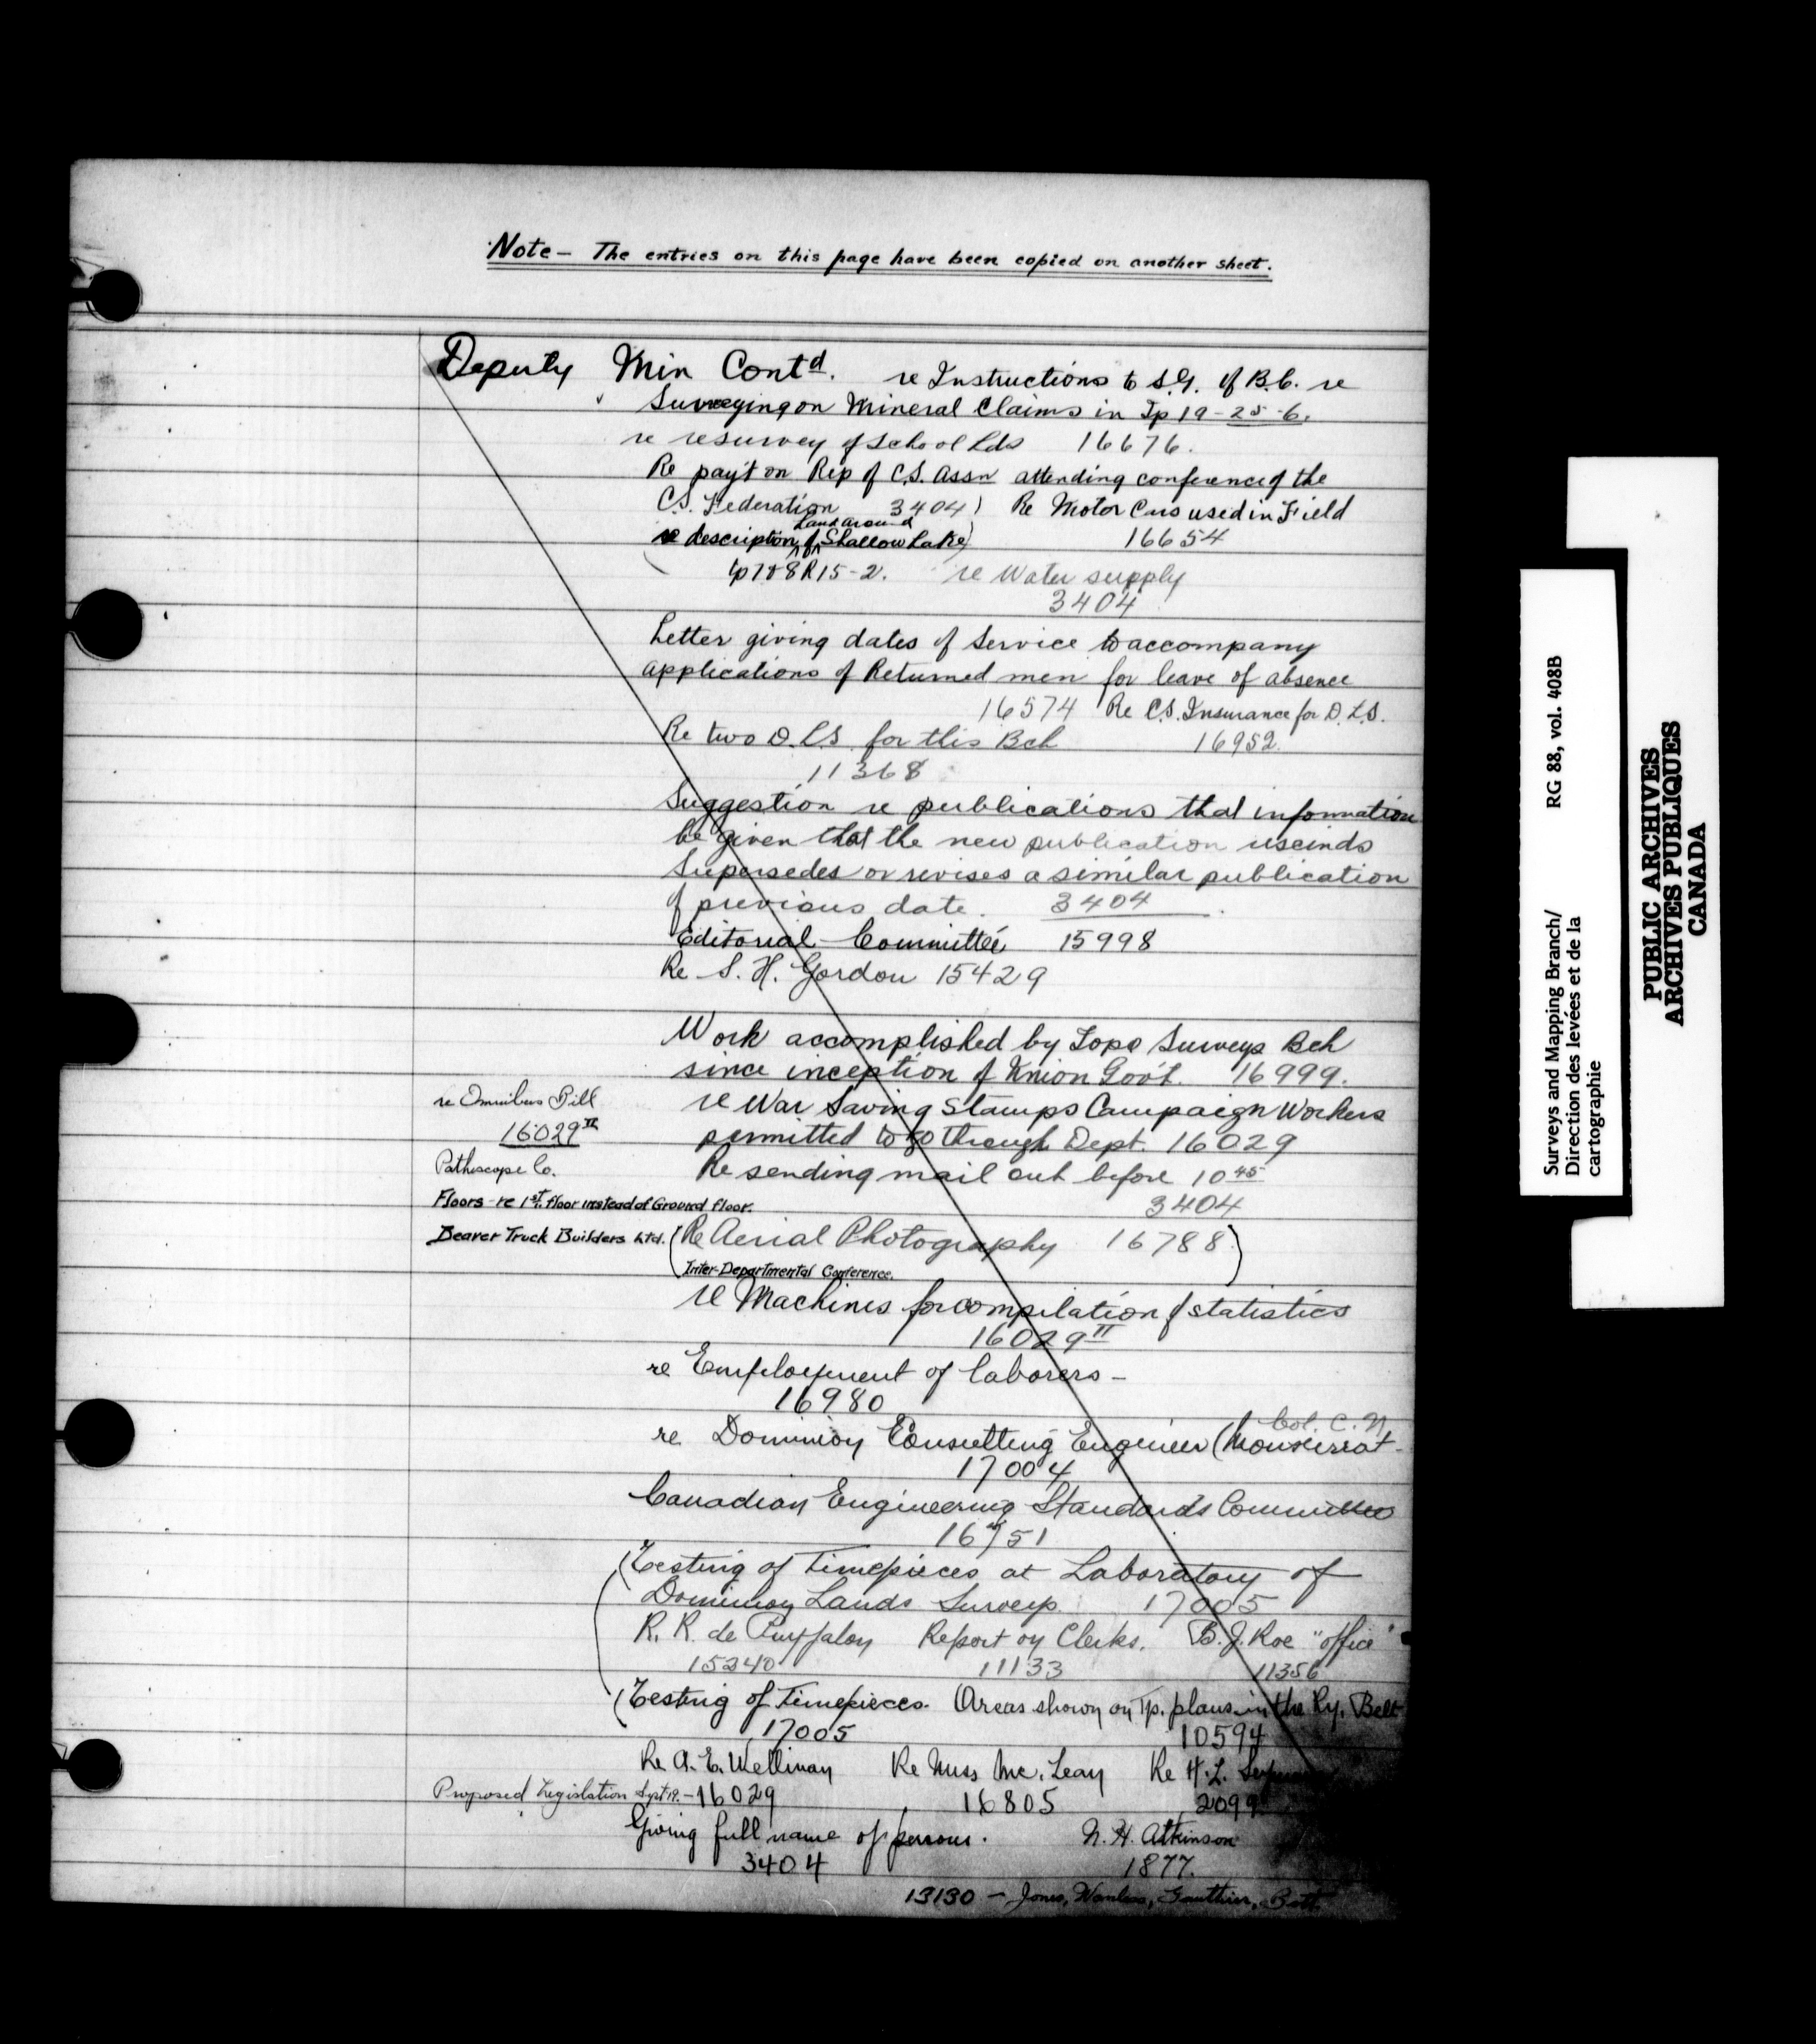 Note - The entries on this page have been copied on another sheet.
Deputy Min Contd. re Instructions to S.G. of B.C. re
Surveying on Mineral Claims in Tp 19-25-6.
re resurvey of School Lds 16676.
Re pay't on Rep of C.S. Assn attending conference of the
C.S. Federation 3404) Re Motor Cars used in Field
Land around
re description of Shallow Lake) 16654
R15-2. re Water supply
3404
Letter giving dates of Service to accompany
applications of Returned men for leave of absence
16574 Re C.S. Insurance for D.L.S.
Re two D.L.S. for this Bch 16952.
11368
Suggestion re publications that information
be given that the new publication rescinds
Supersedes or revises a similar publication
of previous date. 3404
Editorial Committee 15998
Re S. H. Gordon 15429
Work accomplished by Topo Surveys Bch
since inception of Union Gov't. 16999.
re Omnibus Bill re War Saving Stamps Campaign Workers
16029 II permitted to go through Dept. 16029
Pathescope Co. Re sending mail out before 10 45
Floors - re 1st. floor instead of Ground floor. 3404
Beaver Truck Builders Ltd. (Re Aerial Photography 16788)
Inter-Departmental Conference.
re Machines for compilation of statistics
16029 II
re Employment of laborers -
16980
Col. C. N.
re Dominion Consulting Engineer (Monserrat-
17004
Canadian Engineering Standards Committee
(Testing of Timepieces at Laboratory of
Dominion Lands Surveys. 17005
R. R. de Puyjalon Report on Clerks. B. J. Roe "office"
15240 11133 11356
(Testing of Timepieces. Areas shown on Tp. plans in the Ry. Belt
17005 10594
Re A. E. Re Miss Mc. Lean Re H. L.
Proposed Legislation Sept 19. - 16029 16805
Giving full name of persons. N. H. Atkinson
3404 1877.
13130 - Jones, Wanless, Gauthier,
PUBLIC ARCHIVES
ARCHIVES PUBLIQUES
CANADA
Surveys and Mapping Branch/ RG 88, vol. 408B
Direction des levées et de la
cartographie